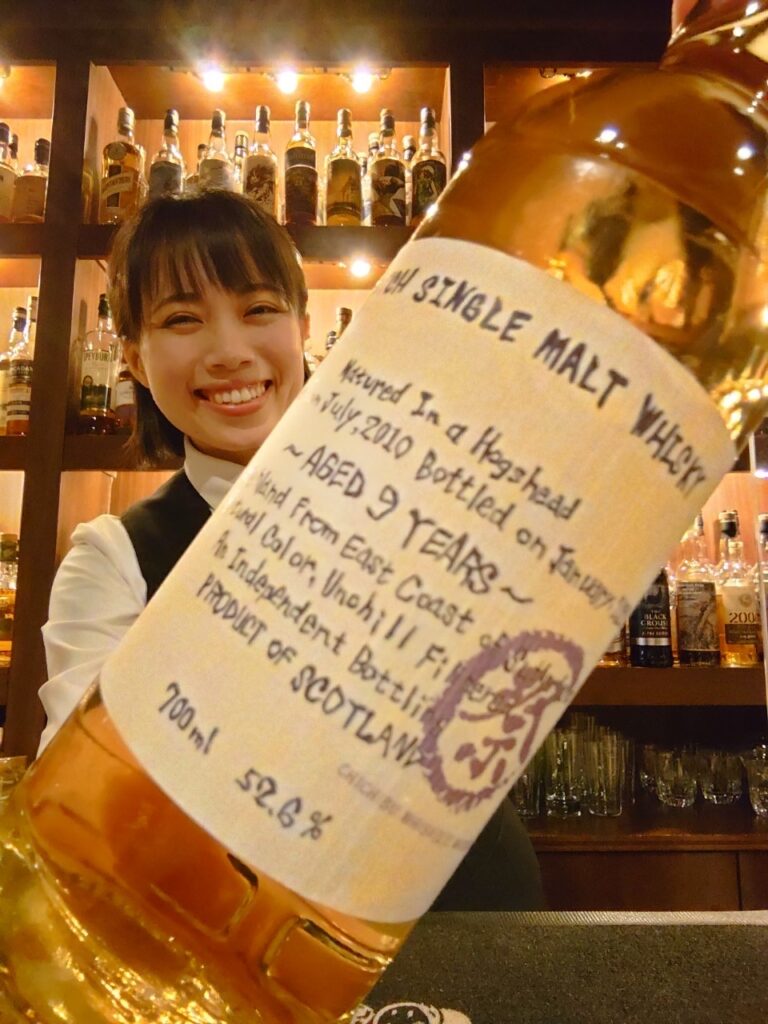 CH SINGLE MALT WHISKY
Matured In a Hogshead
July, 2010 Bottled on January,
~AGED 9 YEARS~
From East Coast of
Color, Unchill Filtered
An Independent Bottling
PRODUCT OF SCOTLAND
700ml 52.6%
祭
PEYBURN
BLACK
GROUSE
200